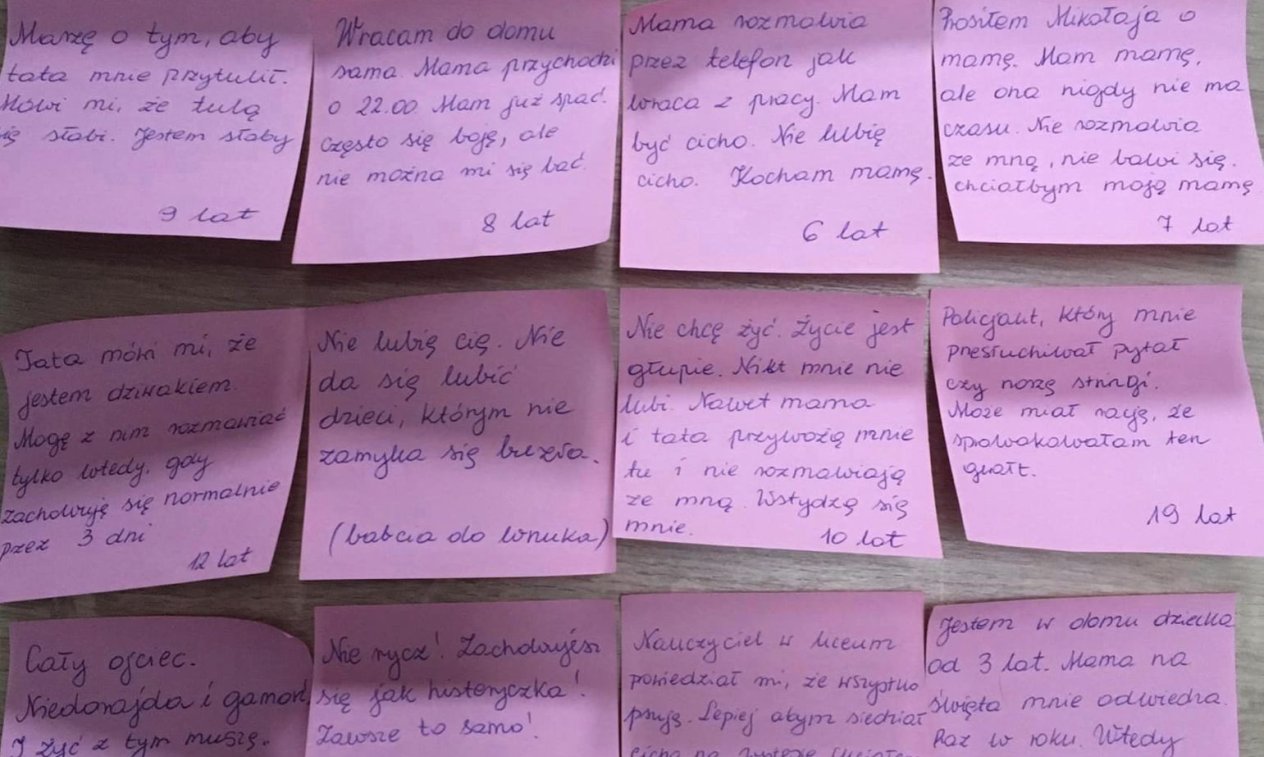 Marzę o tym, aby
tata mnie przytulił.
Mówi mi, że tulą
się słabi. Jestem słaby
9 lat
Wracam do domu
sama. Mama przychodzi
o 22.00 Mam już spać.
często się boję, ale
nie można mi się bać.
8 lat
Mama rozmawia
przez telefon jak
wraca z pracy. Mam
być cicho. Nie lubię
cicho. Kocham mamę.
6 lat
Prosiłem Mikołaja o
mamę. Mam mamę,
ale ona nigdy nie ma
czasu. Nie rozmawia
ze mną, nie bawi się.
chciałbym moją mamę
7 lat
Tata mówi mi, że
jestem dziwakiem.
Mogę z nim rozmawiać
tylko wtedy, gdy
zachowuję się normalnie
przez 3 dni
12 lat
Nie lubię cię. Nie
da się lubić
dzieci, którym nie
zamyka się buzia.
(babcia do wnuka)
Nie chcę żyć. Życie jest
głupie. Nikt mnie nie
lubi. Nawet mama
i tata przywożą mnie
tu i nie rozmawiają
ze mną. Wstydzą się
mnie.
10 lat
Policjant, który mnie
przesłuchiwał pytał
czy noszę stringi.
Może miał rację, że
sprowokowałam ten
gwałt.
19 lat
Cały ojciec.
Niedorajda i gamoń
I żyć z tym muszę.
Nie rycz! Zachowujesz
się jak histeryczka!
Zawsze to samo!
Nauczyciel w liceum
powiedział mi, że wszystko
psuję. Lepiej abym siedział
cicho na
Jestem w domu dziecka
od 3 lat. Mama na
święta mnie odwiedza.
Raz w roku. Wtedy